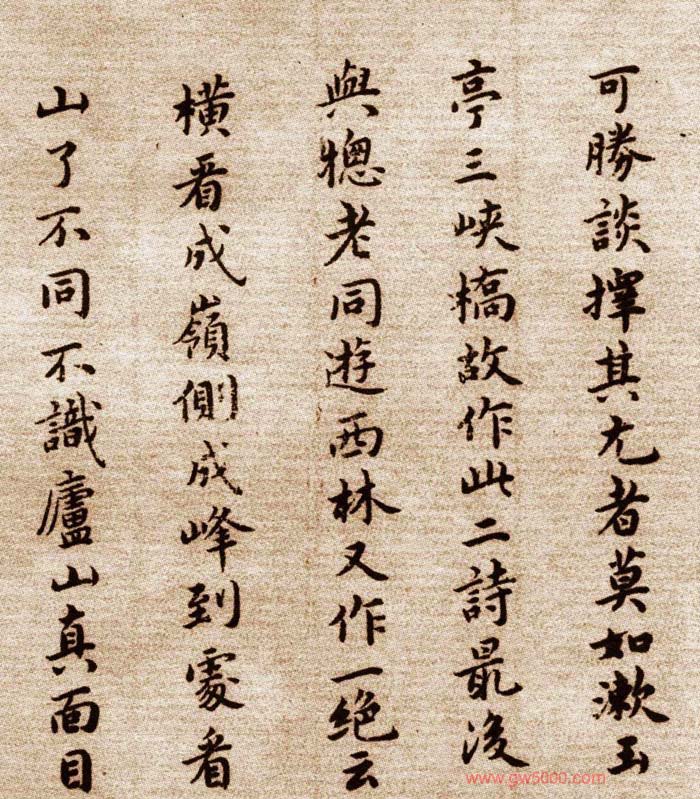 可勝談擇其尤者莫如漱玉
亭三峽橋故作此二詩最後
與聰老同遊西林又作一絕云
橫看成嶺側成峰到處看
山了不同不識廬山真面目
www.gw5000.com